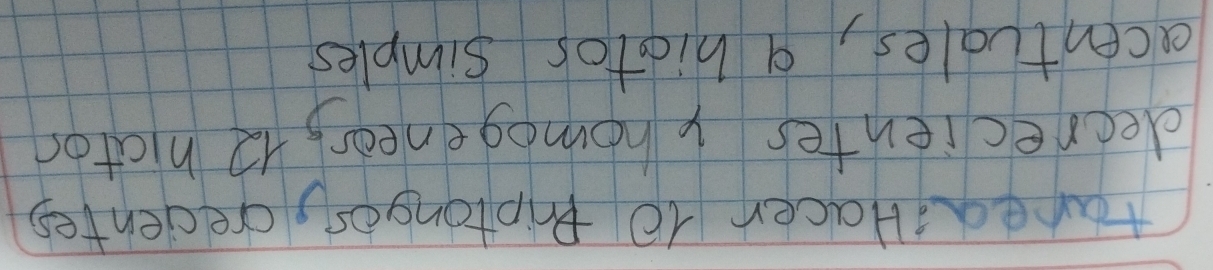 tarea: Hacer 10 Priptongos, crecientes
decrecientes y homogeneos, 12 hiatos
acentuales, 9 hiatos simples